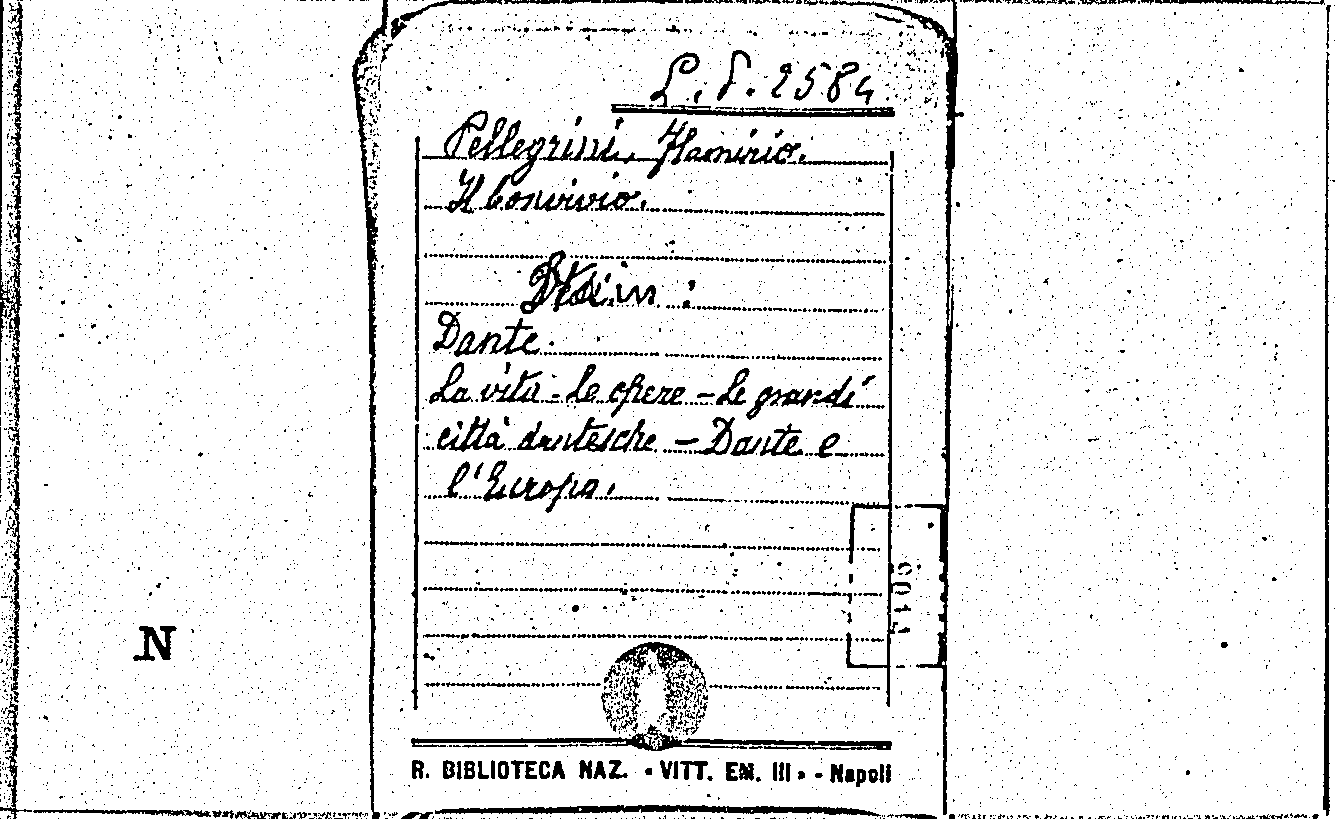 L. d. 2584
Pellegrini, Flaminio.
Il Convivio.
in :
Dante.
La vita - Le opere - Le grandi
città dantesche - Dante e
l'Europa.
N
R. BIBLIOTECA NAZ. « VITT. EM. III » - Napoli